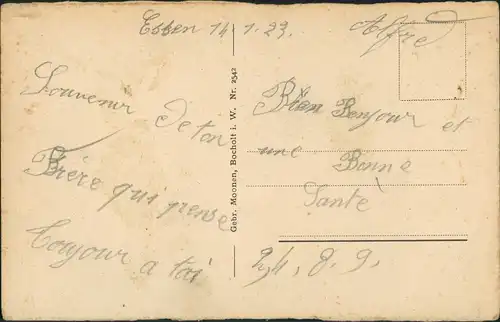 Essen 14.1.23.
Alfred
Souvenir
de ton
Frère qui pense
Toujour a toi
Gebr. Moonen, Bocholt i. W. Nr. 2542
Bien Bonjour et
une Bonne
Santé
24. 8. 9.